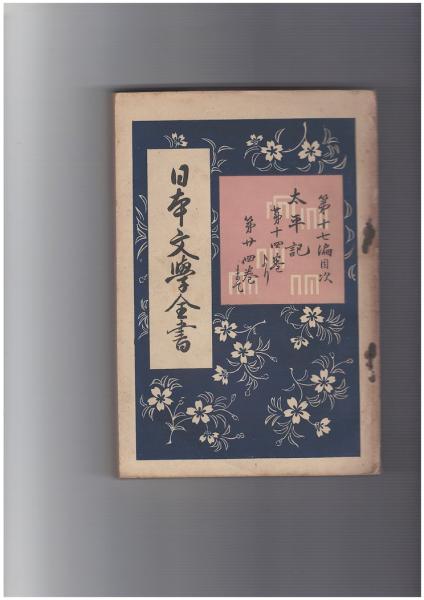 第十七編目次
太平記
第十四巻より
第廿四巻まで
日本文學全書